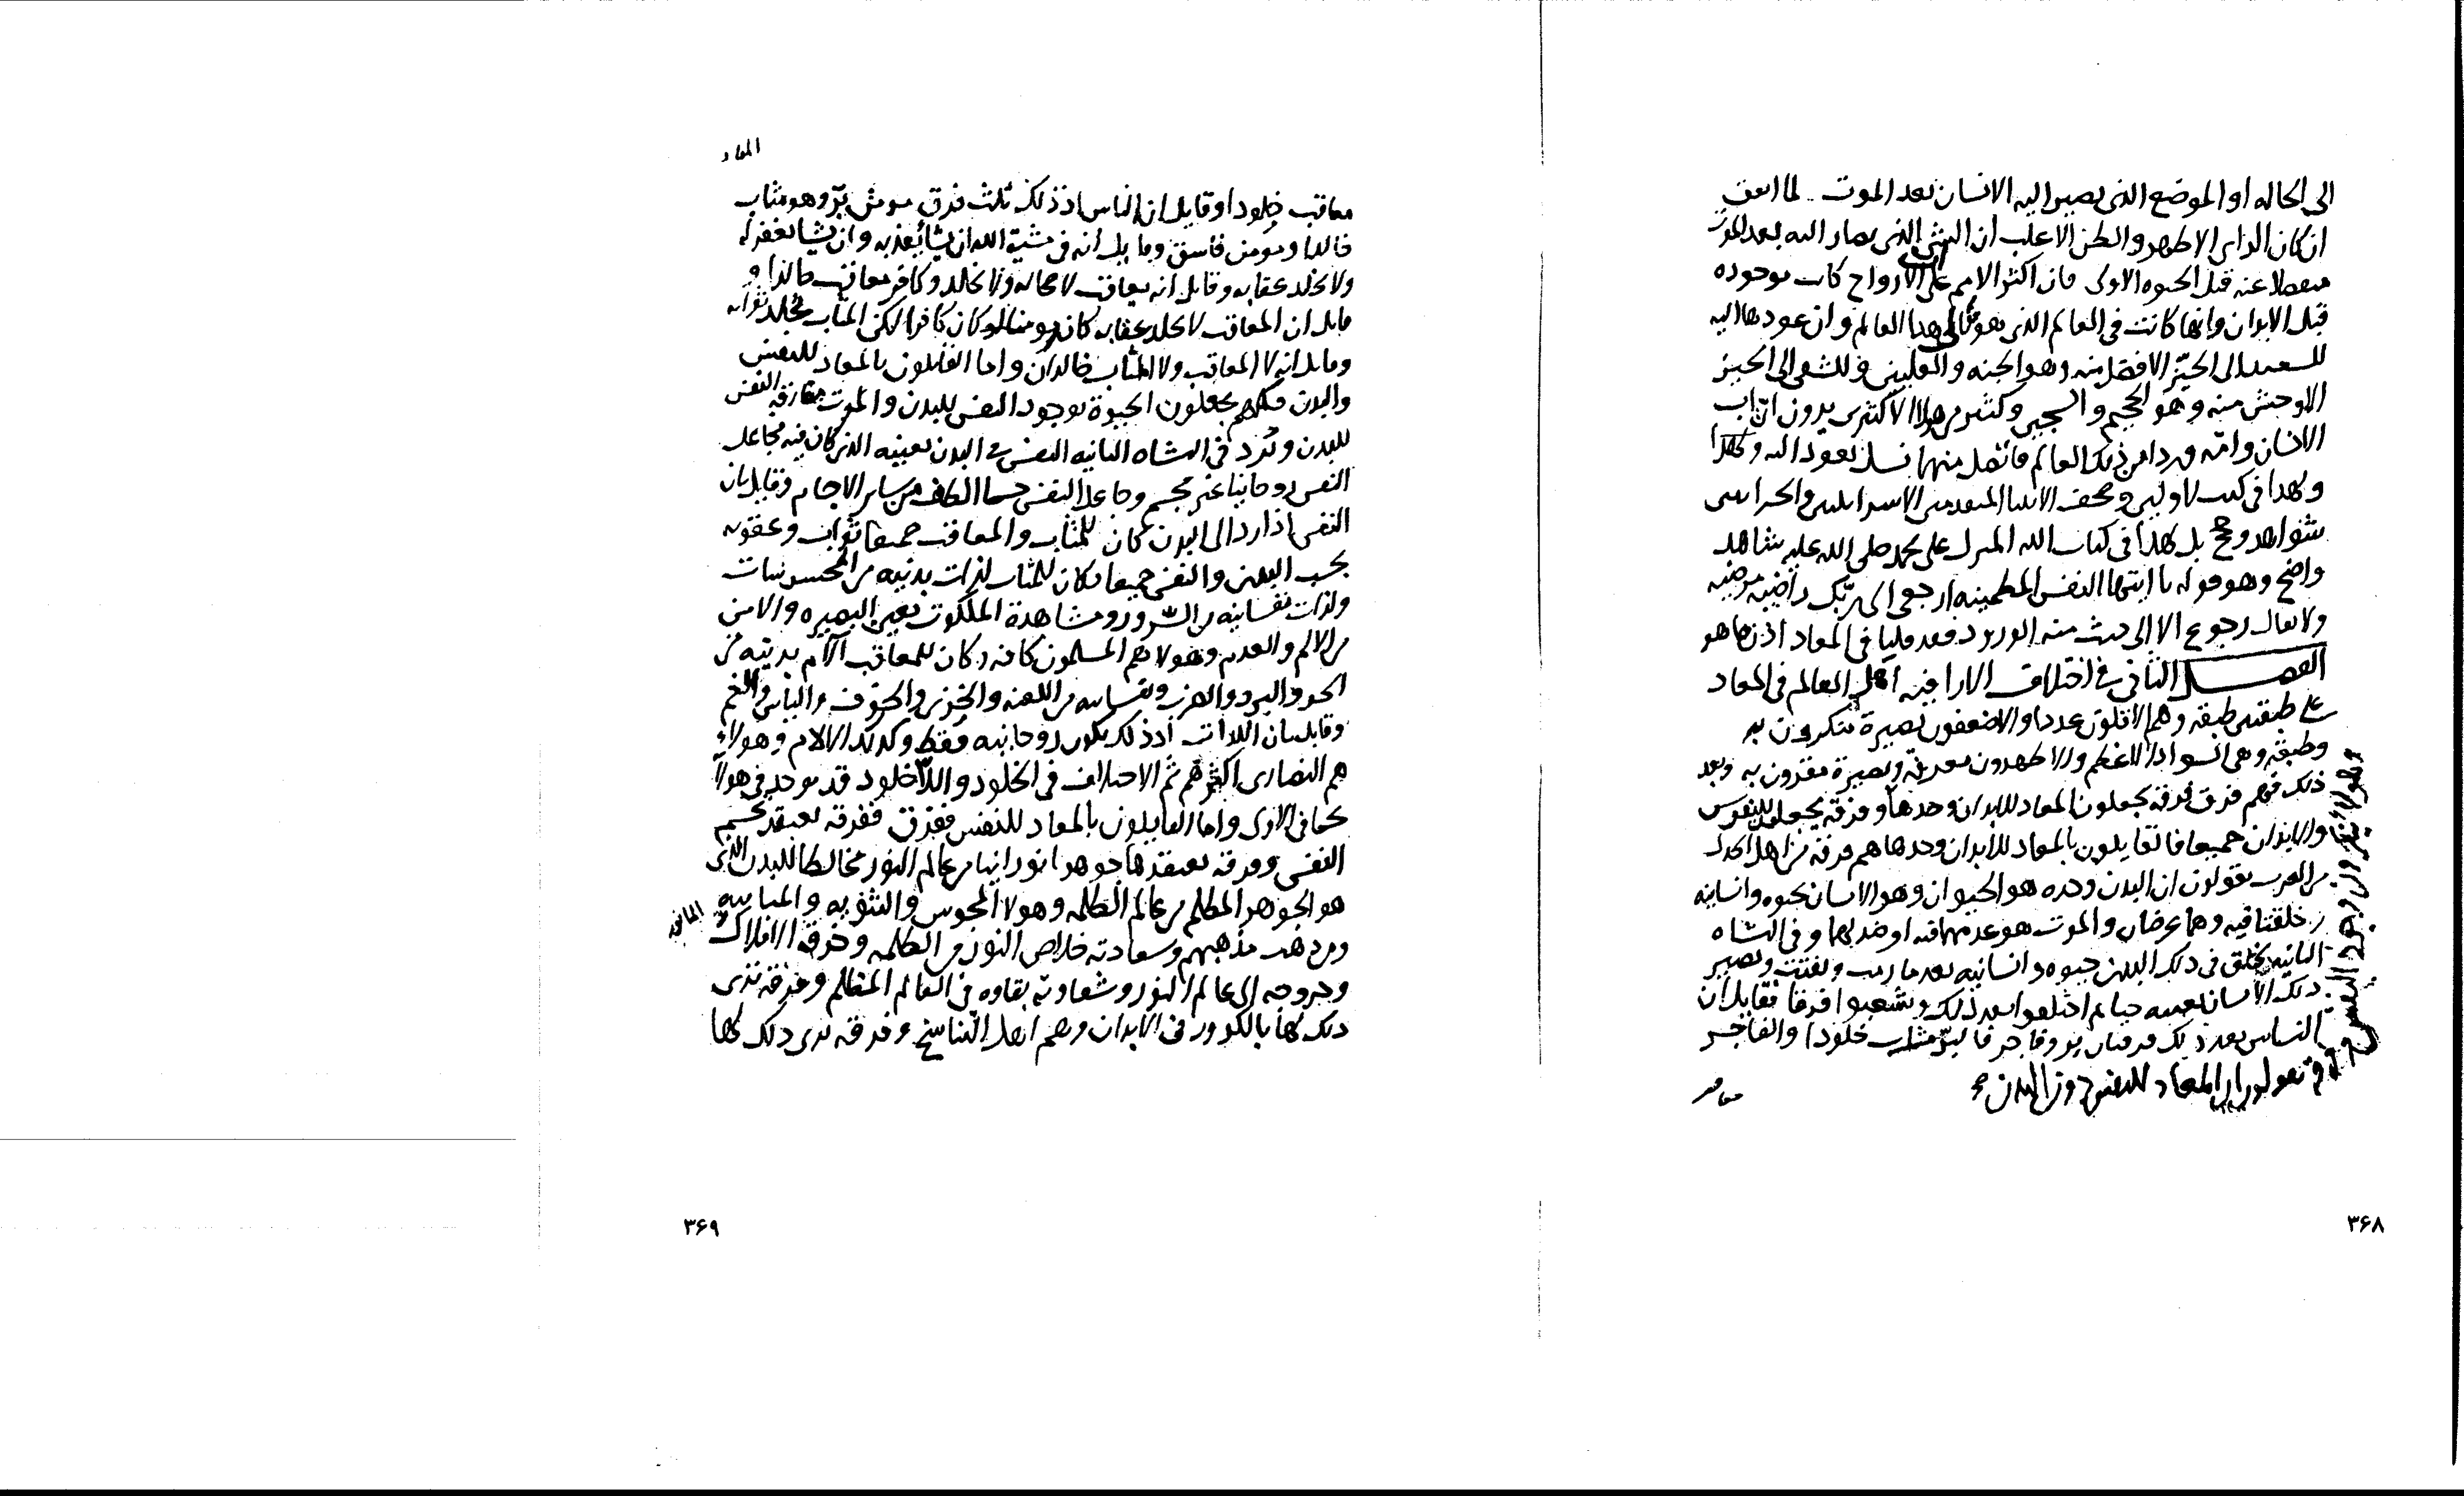 الى الحاله او الموضع الذى يصير اليه الانسان بعد الموت
ان كان الراى الاظهر والظن الاغلب ان الشى الذى يصار اليه بعد الموت
منفصلا عنه قبل الحيوه الاولى فان اكثر الامم على ان الارواح كانت موجوده
قبل الابدان وانها كانت فى العالم الذى هذا العالم وان عودها اليه
للسعيد الى الحيّز الافضل منه وهو الجنه والعليين وللشقى الى الحيز
الاوحش منه وهو الجحيم والسجين وكثير من هولا الاكثرين يرون ان اب
الانسان وامّه وردا من ذلك العالم فاتصل منهما نسل يعود اليه وكهذا
وكهذا فى كتب الاولين وصحف الانبيا المتقدمين الاسرائليين والحرانيين
شواهد وحجج بل كهذا فى كتاب الله المنزل على محمد صلى الله عليه شاهد
واضح وهو قوله يا ايتها النفس المطمينه ارجعى الى ربّك راضيه مرضيه
ولا يقال رجوع الا الى حيث منه الورود فقد قلنا فى المعاد اذن ما هو
الفصل الثانى فى اختلاف الارا فيه اهل العالم فى المعاد
على طبقتين طبقه وهم الاقلون عددا والاضعفون بصيرة منكرون به
وطبقه وهى السواد الاعظم والاظهرون معرفه وبصيرة مقرون به وبعد
ذلك فهم فرق فرقه يجعلون المعاد للابدان وحدها وفرقه يجعلون للنفوس
والابدان جميعا فالقايلون بالمعاد للابدان وحدها هم فرقه من اهل الجدل
من العرب يقولون ان البدن وحده هو الحيوان وهو الانسان بحيوه وانسانيه
خلقتا فيه وهما عرضان والموت هو عدمهما فيه او ضد لهما وفى النشاه
الثانيه يخلق فى ذلك البدن حيوه وانسانيه بعد ما رمت وتفتت ويصير
ذلك الانسان بعينه حيا ثم اختلفوا بعد ذلك وتشعبوا فرقا فقايل ان
الناس بعد ذلك فرقتان بر وفاجر فالبرّ مثاب خلودا والفاجر
وفرقة يقولون ان المعاد للنفس دون البدن صح
معاقب
٣۶٨
المعاد
معاقب خلودا وقايل ان الناس اذ ذلك ثلث فرق مومن برّ وهو مثاب
خالدا ومومن فاسق وقايل انه فى مشية الله ان يشا يعذبه وان يشا يغفر له
ولا يخلد عقابه وقايل انه يعاقب لا محاله ولا يخلد وكافر معاقب خالدا و
قايل ان المعاقب لا يخلد عقابه كان مومنا او كان كافرا لكن المثاب يخلد ثوابه
وقايل انه لا المعاقب ولا المثاب خالدان واما القايلون بالمعاد للنفس
والبدن فكلهم يجعلون الحيوة بوجود النفس للبدن والموت مفارقة النفس
للبدن وتُرد فى النشاه الثانيه النفس فى البدن بعينه الذى كان فيه فجاعل
النفس روحانيا غير مجسم وجاعل النفس جسما الطف من ساير الاجسام وقايل بان
النفس اذا رد الى البدن كان للمثاب والمعاقب جميعا ثواب وعقوبه
بحسب البدن والنفس جميعا فكان للمثاب لذات بدنيه من المحسوسات
ولذات نفسانيه من السّرور ومشاهدة الملكوت بعين البصيره والامن
من الالم والعدم وهولا هم المسلمون كافه وكان للمعاقب آلام بدنيه من
الحر والبرد والضرب ونفسانيه من اللعنه والخزى والخوف والياس والغم
وقايل بان اللذات اذ ذلك يكون روحانيه فقط وكذلك الالام وهولاء
هم النصارى اكثرهم ثم الاختلاف فى الخلود واللاّ خلود قد يوجد فى هولا
كما فى الاولى واما القايلون بالمعاد للنفس ففرق ففرقه تعتقد تجسم
النفس وفرقه تعتقدها جوهرا نورانيا من عالم النور مخالطا للبدن الذى
هو الجوهر المظلم من عالم الظلمه وهولا المجوس والثنويه والمانيه
ومن ذهب مذهبهم وسعادته خلاص النور من الظلمه وخرقه الافلاك
وخروجه الى عالم النور وشقاوته بقاوه فى العالم المظلم وفرقه ترى
ذلك كلها بالكرور فى الابدان وهم اهل التّناسخ وفرقه ترى ذلك كلها
٣۶٩